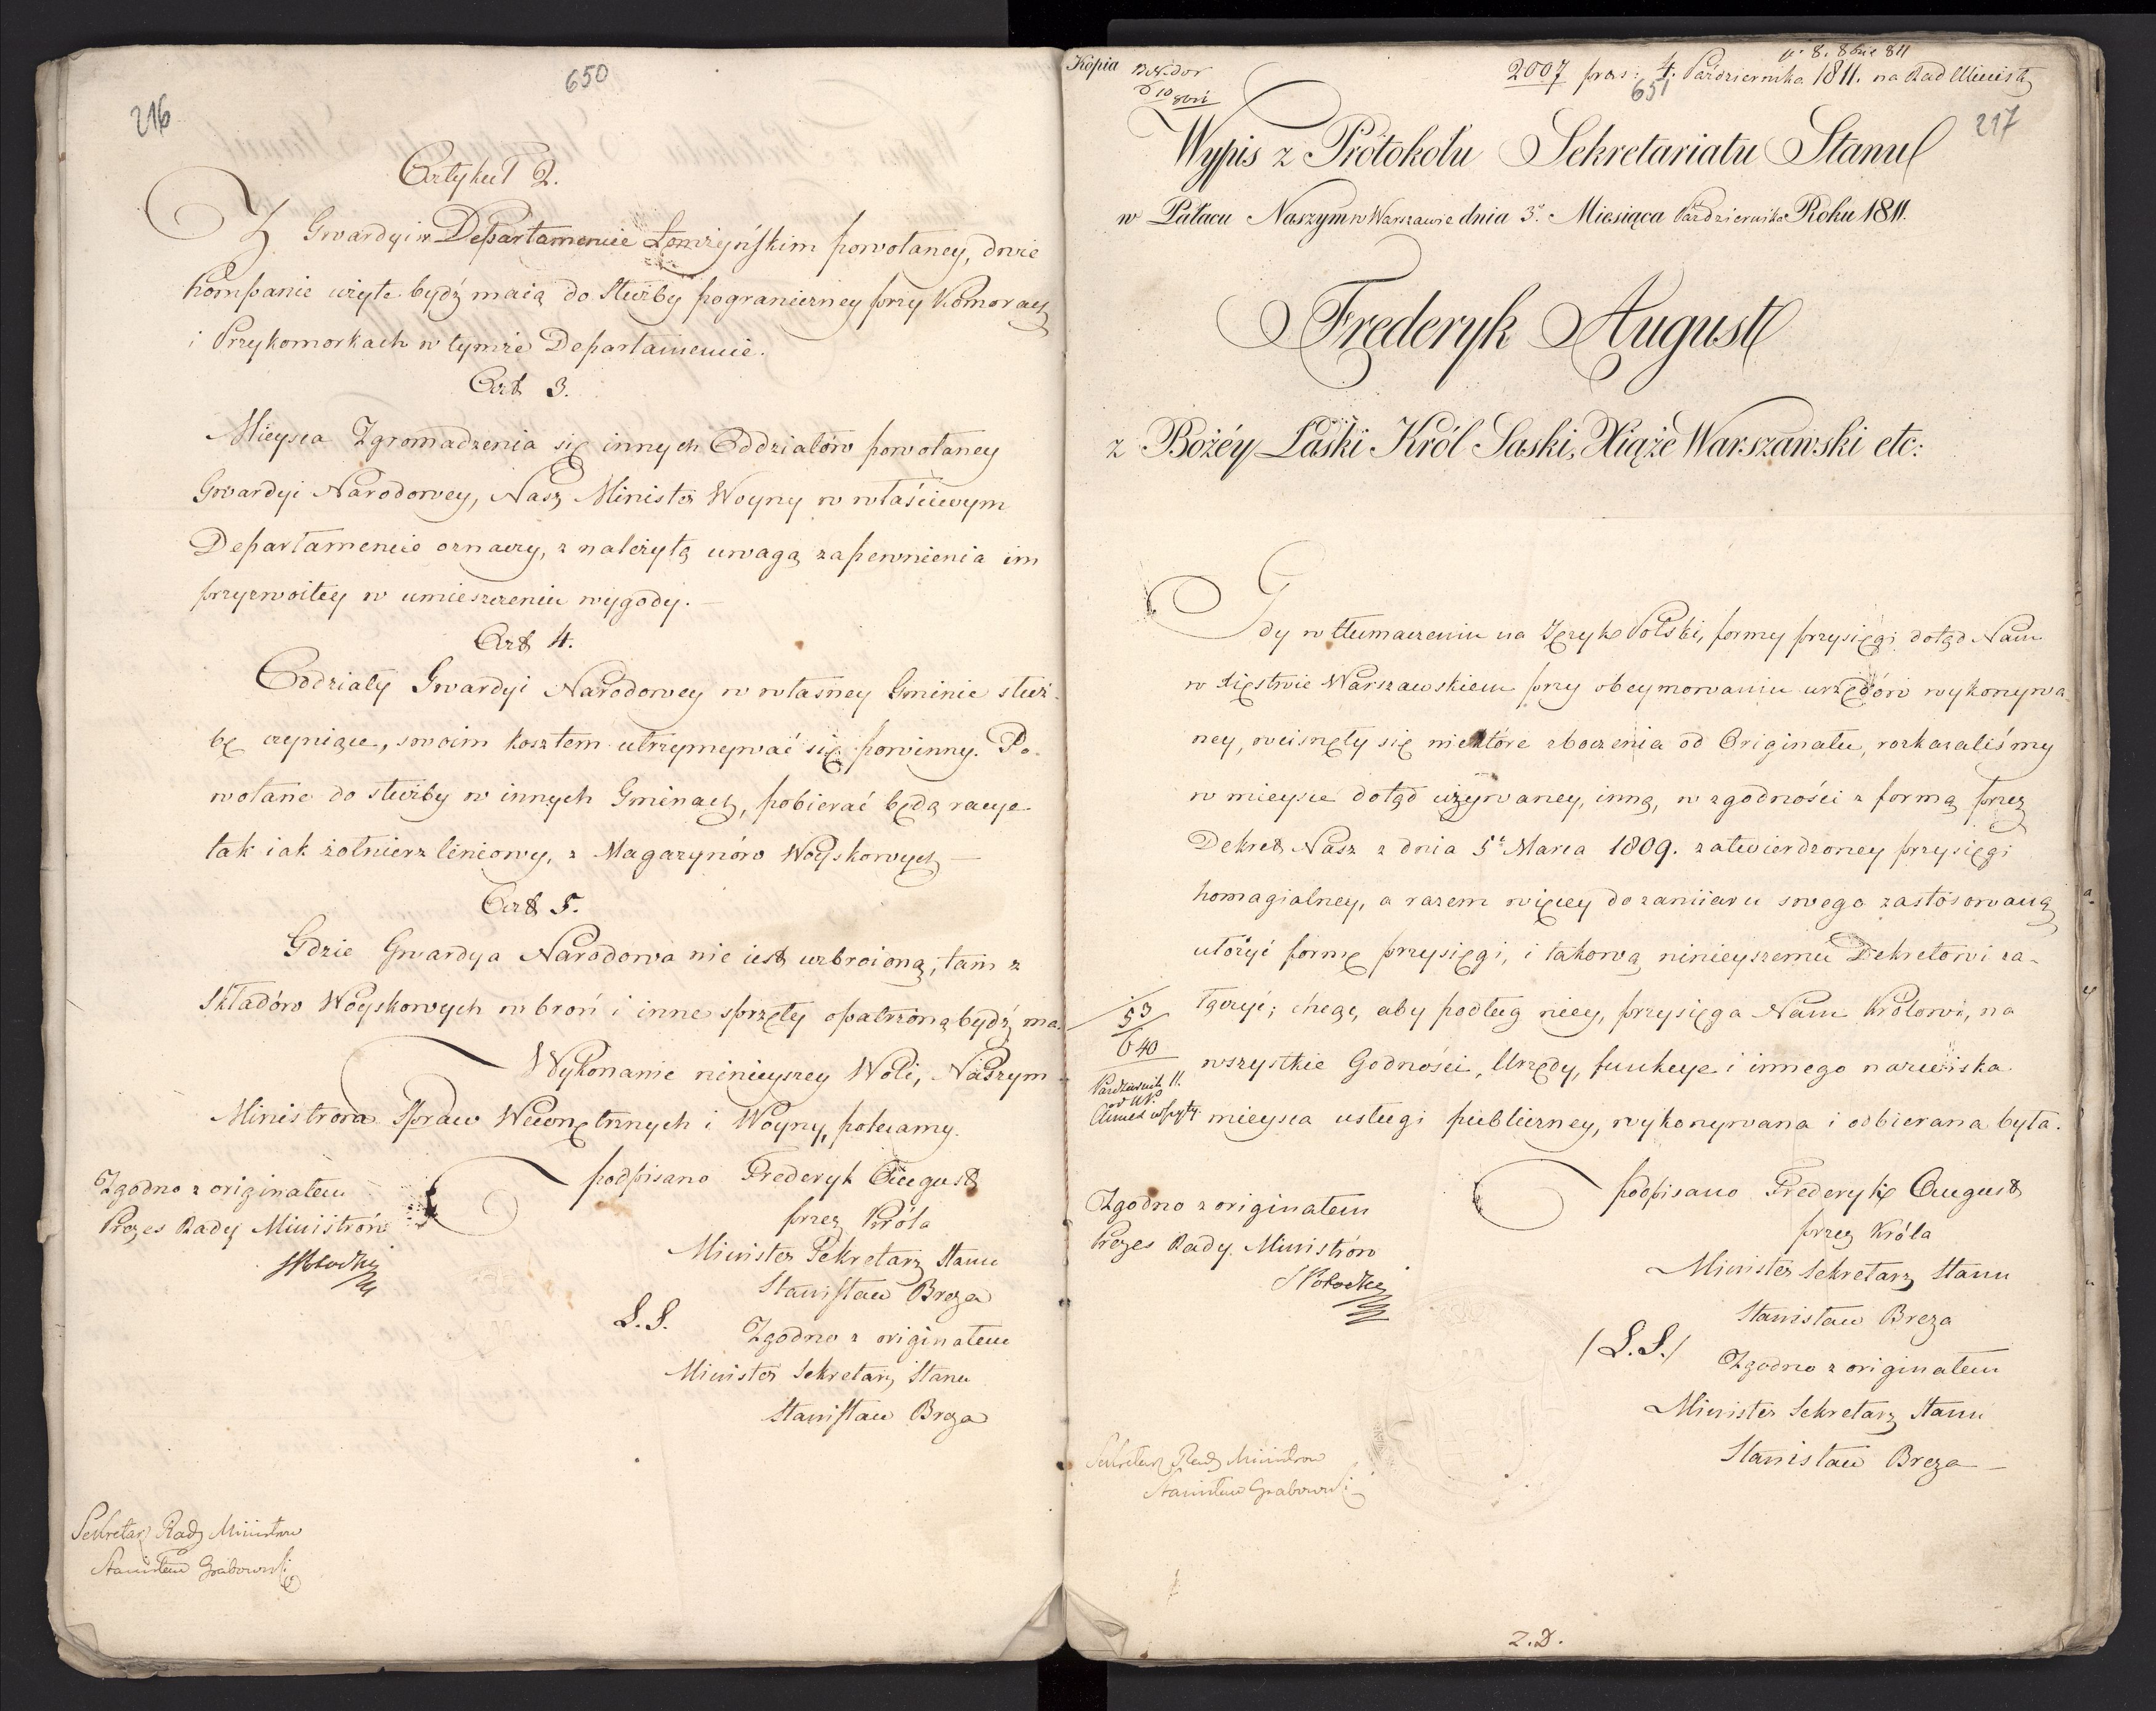 650
216
Artykuł 2.
Z Gwardyi w Departamencie Łomżyńskim powołaney, dwie
kompanie użyte bydź maią do służby pograniczney przy Komorach
i Przykomorkach w tymże Departamencie.
Art 3.
Mieysca Zgromadzenia się innych Oddziałów powołaney
Gwardyi Narodowey, Nasz Minister Woyny w właściwym
Departamencie oznaczy, z należytą uwagą zapewnienia im
przyzwoitey w umieszczeniu wygody. –
Art 4.
Oddziały Gwardyi Narodowey w własney Gminie służ-
bę czyniące, swoim kosztem utrzymywać się powinny. Po-
wołane do służby w innych Gminach, pobierać będą racye
tak iak żołnierz liniowy, z Magazynów Woyskowych –
Art 5.
Gdzie Gwardya Narodowa nie iest uzbroioną, tam z
Składów Woyskowych w broń i inne sprzęty opatrzoną bydź ma.
Wykonanie ninieyszey Woli, Naszym
Ministrom Spraw Wewnętrznych i Woyny, polecamy.
podpisano Frederyk August
przez Króla
Minister Sekretarz Stanu
Stanisław Breza
L.S.
Zgodno z originałem
Minister Sekretarz Stanu
Stanisław Breza
Zgodno z originałem
Prezes Rady Ministrów
S Potocki
Sekretarz Rady Ministrów
Stanisław Grabowski
Kopia
2007 pras: 4. Października 1811. na Rad Ministr
651
217
Wypis z Protokołu Sekretariatu Stanu
w Pałacu Naszym w Warszawie dnia 3º Miesiąca Października Roku 1811.
Frederyk August
z Bożéy Łaski Król Saski, Xiąże Warszawski etc:
Gdy w tłumaczeniu na Język Polski, formy przysięgi dotąd Nam
w Xięstwie Warszawskiem przy obeymowaniu urzędów wykonywa
ney, wcisnęły się niektóre zboczenia od Originału, rozkazaliśmy
w mieysce dotąd używaney, inną, w zgodności z formą przez
Dekret Nasz z dnia 5º Marca 1809. zatwierdzoney przysięgi
homagialney, a razem więcey do zamiaru swego zastosowaną
ułożyć formę przysięgi, i takową ninieyszemu Dekretowi za-
łączyć; chcąc, aby podług niey, przysięga Nam Królowi, na
wszystkie Godności, Urzędy, funkcye i innego nazwiska
mieysca usługi publiczney, wykonywana i odbierana była.
53
640
Październik 11.
podpisano Frederyk August
przez Króla
Minister Sekretarz Stanu
Stanisław Breza
/L.S./
Zgodno z originałem
Minister Sekretarz Stanu
Stanisław Breza
Zgodno z originałem
Prezes Rady Ministrów
S Potocki
Sekretarz Rady Ministrów
Stanisław Grabowski
2.D.